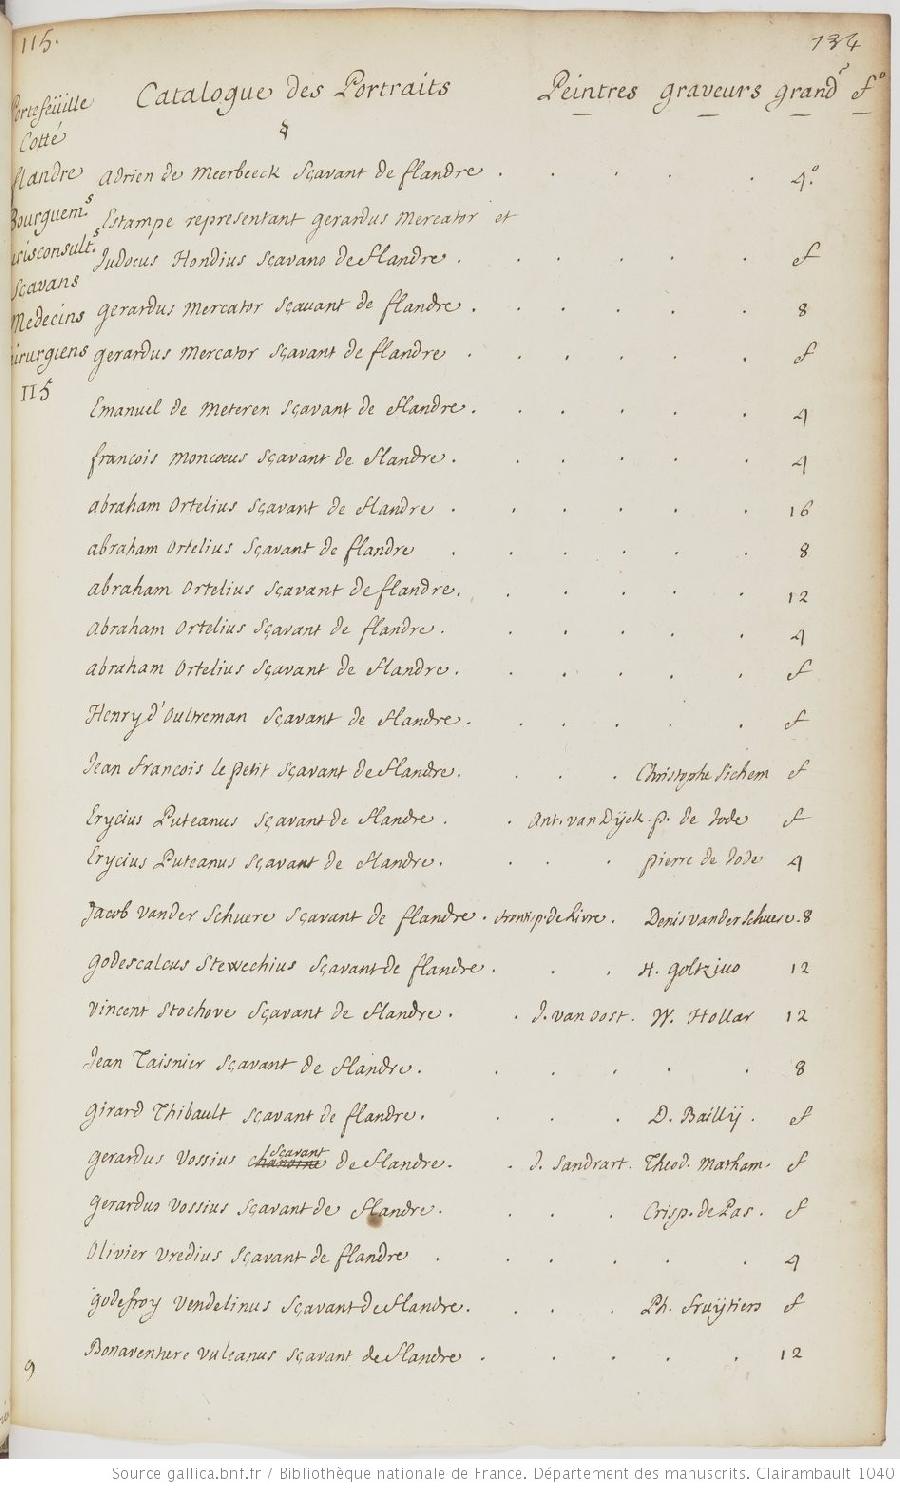 115.
134
Portefeüille
Cotté
flandre
Bourguem.s
urisconsult.s
Sçavans
Medecins
hirurgiens
115
Catalogue des Portraits
Peintres graveurs grand.r fo
Adrien de Meerbeeck Sçavant de flandre . . . . . 4.o
Estampe representant gerardus Mercator et
Judocus Hondius Sçavans de flandre . . . . . . f
gerardus Mercator Sçavant de flandre . . . . . . 8
gerardus Mercator Sçavant de flandre . . . . . . f
Emanuel de Meteren Sçavant de flandre . . . . . . 4
françois Monçœus Sçavant de flandre . . . . . . 4
abraham Ortelius Sçavant de flandre . . . . . . 16
abraham Ortelius Sçavant de flandre . . . . . . 8
abraham Ortelius Sçavant de flandre . . . . . . 12
abraham Ortelius Sçavant de flandre . . . . . . 4
abraham Ortelius Sçavant de flandre . . . . . . f
Henry d'Oultreman Sçavant de flandre . . . . . f
Jean François le petit Sçavant de flandre . . . . Christophe Sichem f
Erycius Puteanus Sçavant de flandre . . Ant. van Dÿck . p. de Jode f
Erycius Puteanus Sçavant de flandre . . . . pierre de Jode 4
Jacob vander Schuere Sçavant de flandre . frontisp. de Livre . Denis vander Schuere . 8
godescalcus Stewechius Sçavant de flandre . . . H. goltzius 12
Vincent Stochove Sçavant de flandre . . J. van Oost . W. Hollar 12
Jean Taisnier Sçavant de flandre . . . . . . 8
girard Thibault Sçavant de flandre . . . . D. Baillÿ . f
gerardus Vossius chanoine Sçavant de flandre . . J. Sandrart . Theod. Matham . f
gerardus Vossius Sçavant de flandre . . . . Crisp. de Pas . f
Olivier Vredius Sçavant de flandre . . . . . . 4
godefroy Vendelinus Sçavant de flandre . . . . Ph. fruÿtiers f
Bonaventure Vulcanus Sçavant de flandre . . . . . 12
9
Source gallica.bnf.fr / Bibliothèque nationale de France. Département des manuscrits. Clairambault 1040